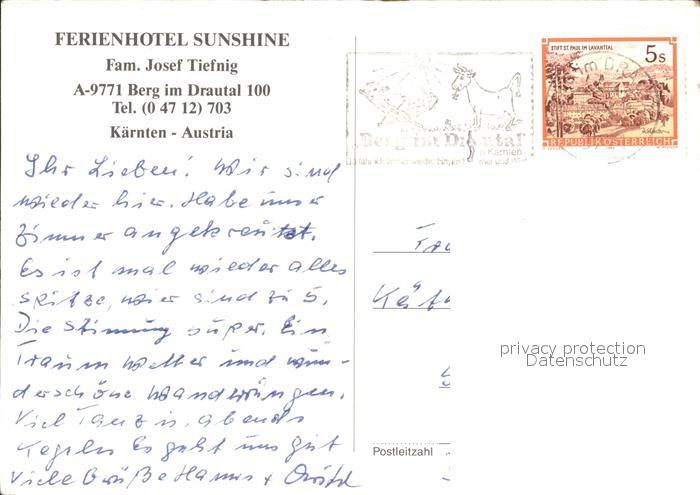 FERIENHOTEL SUNSHINE
Fam. Josef Tiefnig
A-9771 Berg im Drautal 100
Tel. (0 47 12) 703
Kärnten - Austria
Ihr Lieben! Wir sind
wieder hier. Habe unser
Zimmer angekreuzt.
Es ist mal wieder alles
spitze, wier sind zu 5.
Die Stimmung super. Ein
Traum Wetter und wun-
derschöne Wanderungen.
Viel Tanz u. abends
Kegeln Es geht uns gut
Viele Grüße Hannes +
STIFT ST. PAUL IM LAVANTTAL
5s
REPUBLIK ÖSTERREICH
im DRAU
Berg im Drautal
Kärnten
Da fahr ich immer wieder hin,
privacy protection
Datenschutz
Postleitzahl